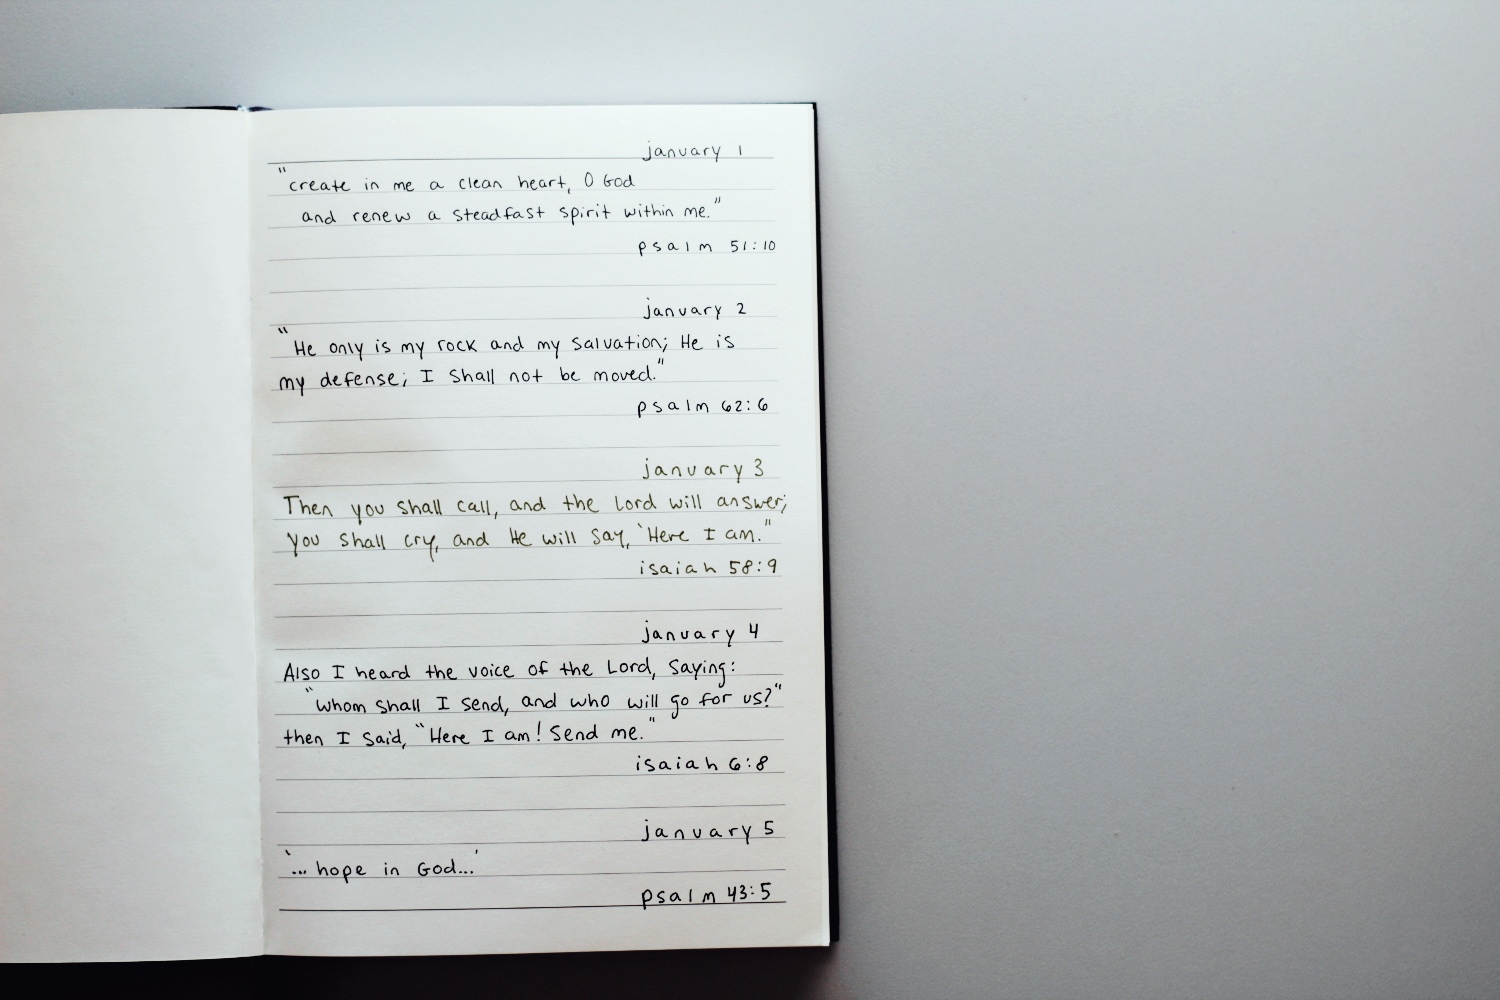 january 1
"create in me a clean heart, O God
and renew a steadfast spirit within me."
psalm 51:10
january 2
"He only is my rock and my salvation; He is
my defense; I shall not be moved."
psalm 62:6
january 3
Then you shall call, and the Lord will answer;
you shall cry, and He will say, 'Here I am."
isaiah 58:9
january 4
Also I heard the voice of the Lord, saying:
"Whom shall I send, and who will go for us?"
then I said, "Here I am! Send me."
isaiah 6:8
january 5
'... hope in God...'
psalm 43:5